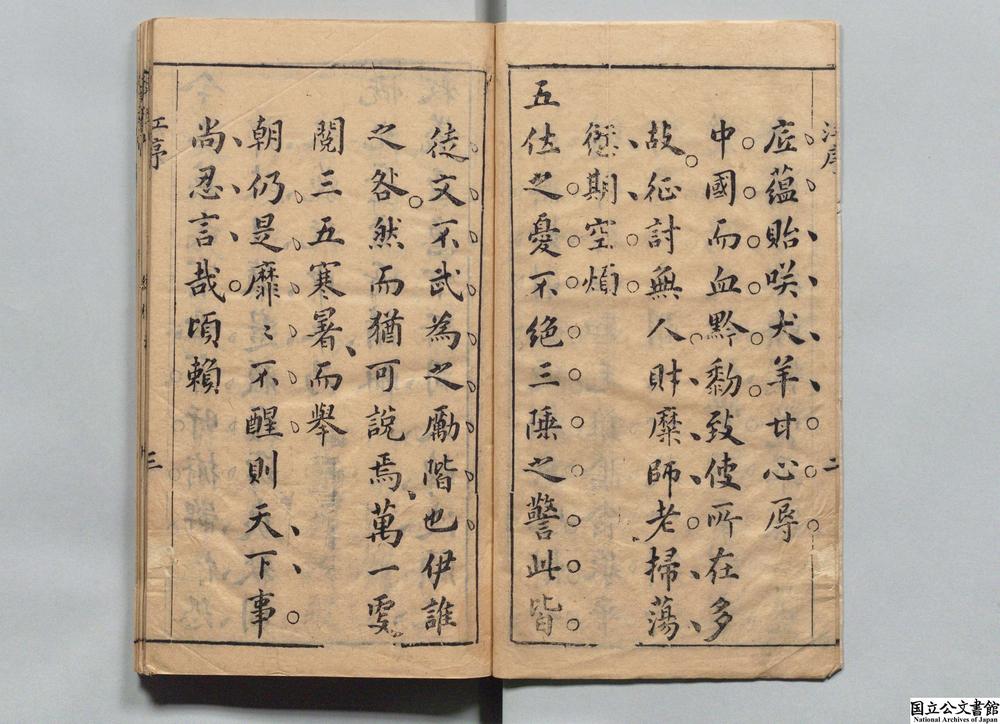 江序
二
底蕴貽咲犬羊甘心辱
中國而血黔黎致使所在多
故征討無人財糜師老掃蕩
愆期空煩
五位之憂不絕三陲之警此皆
徒文不武為之勵階也伊誰
之咎然而猶可說焉萬一雯
閱三五寒暑而舉
朝仍是靡〻不醒則天下事
尚忍言哉頃賴
江序
三
国立公文書館
National Archives of Japan